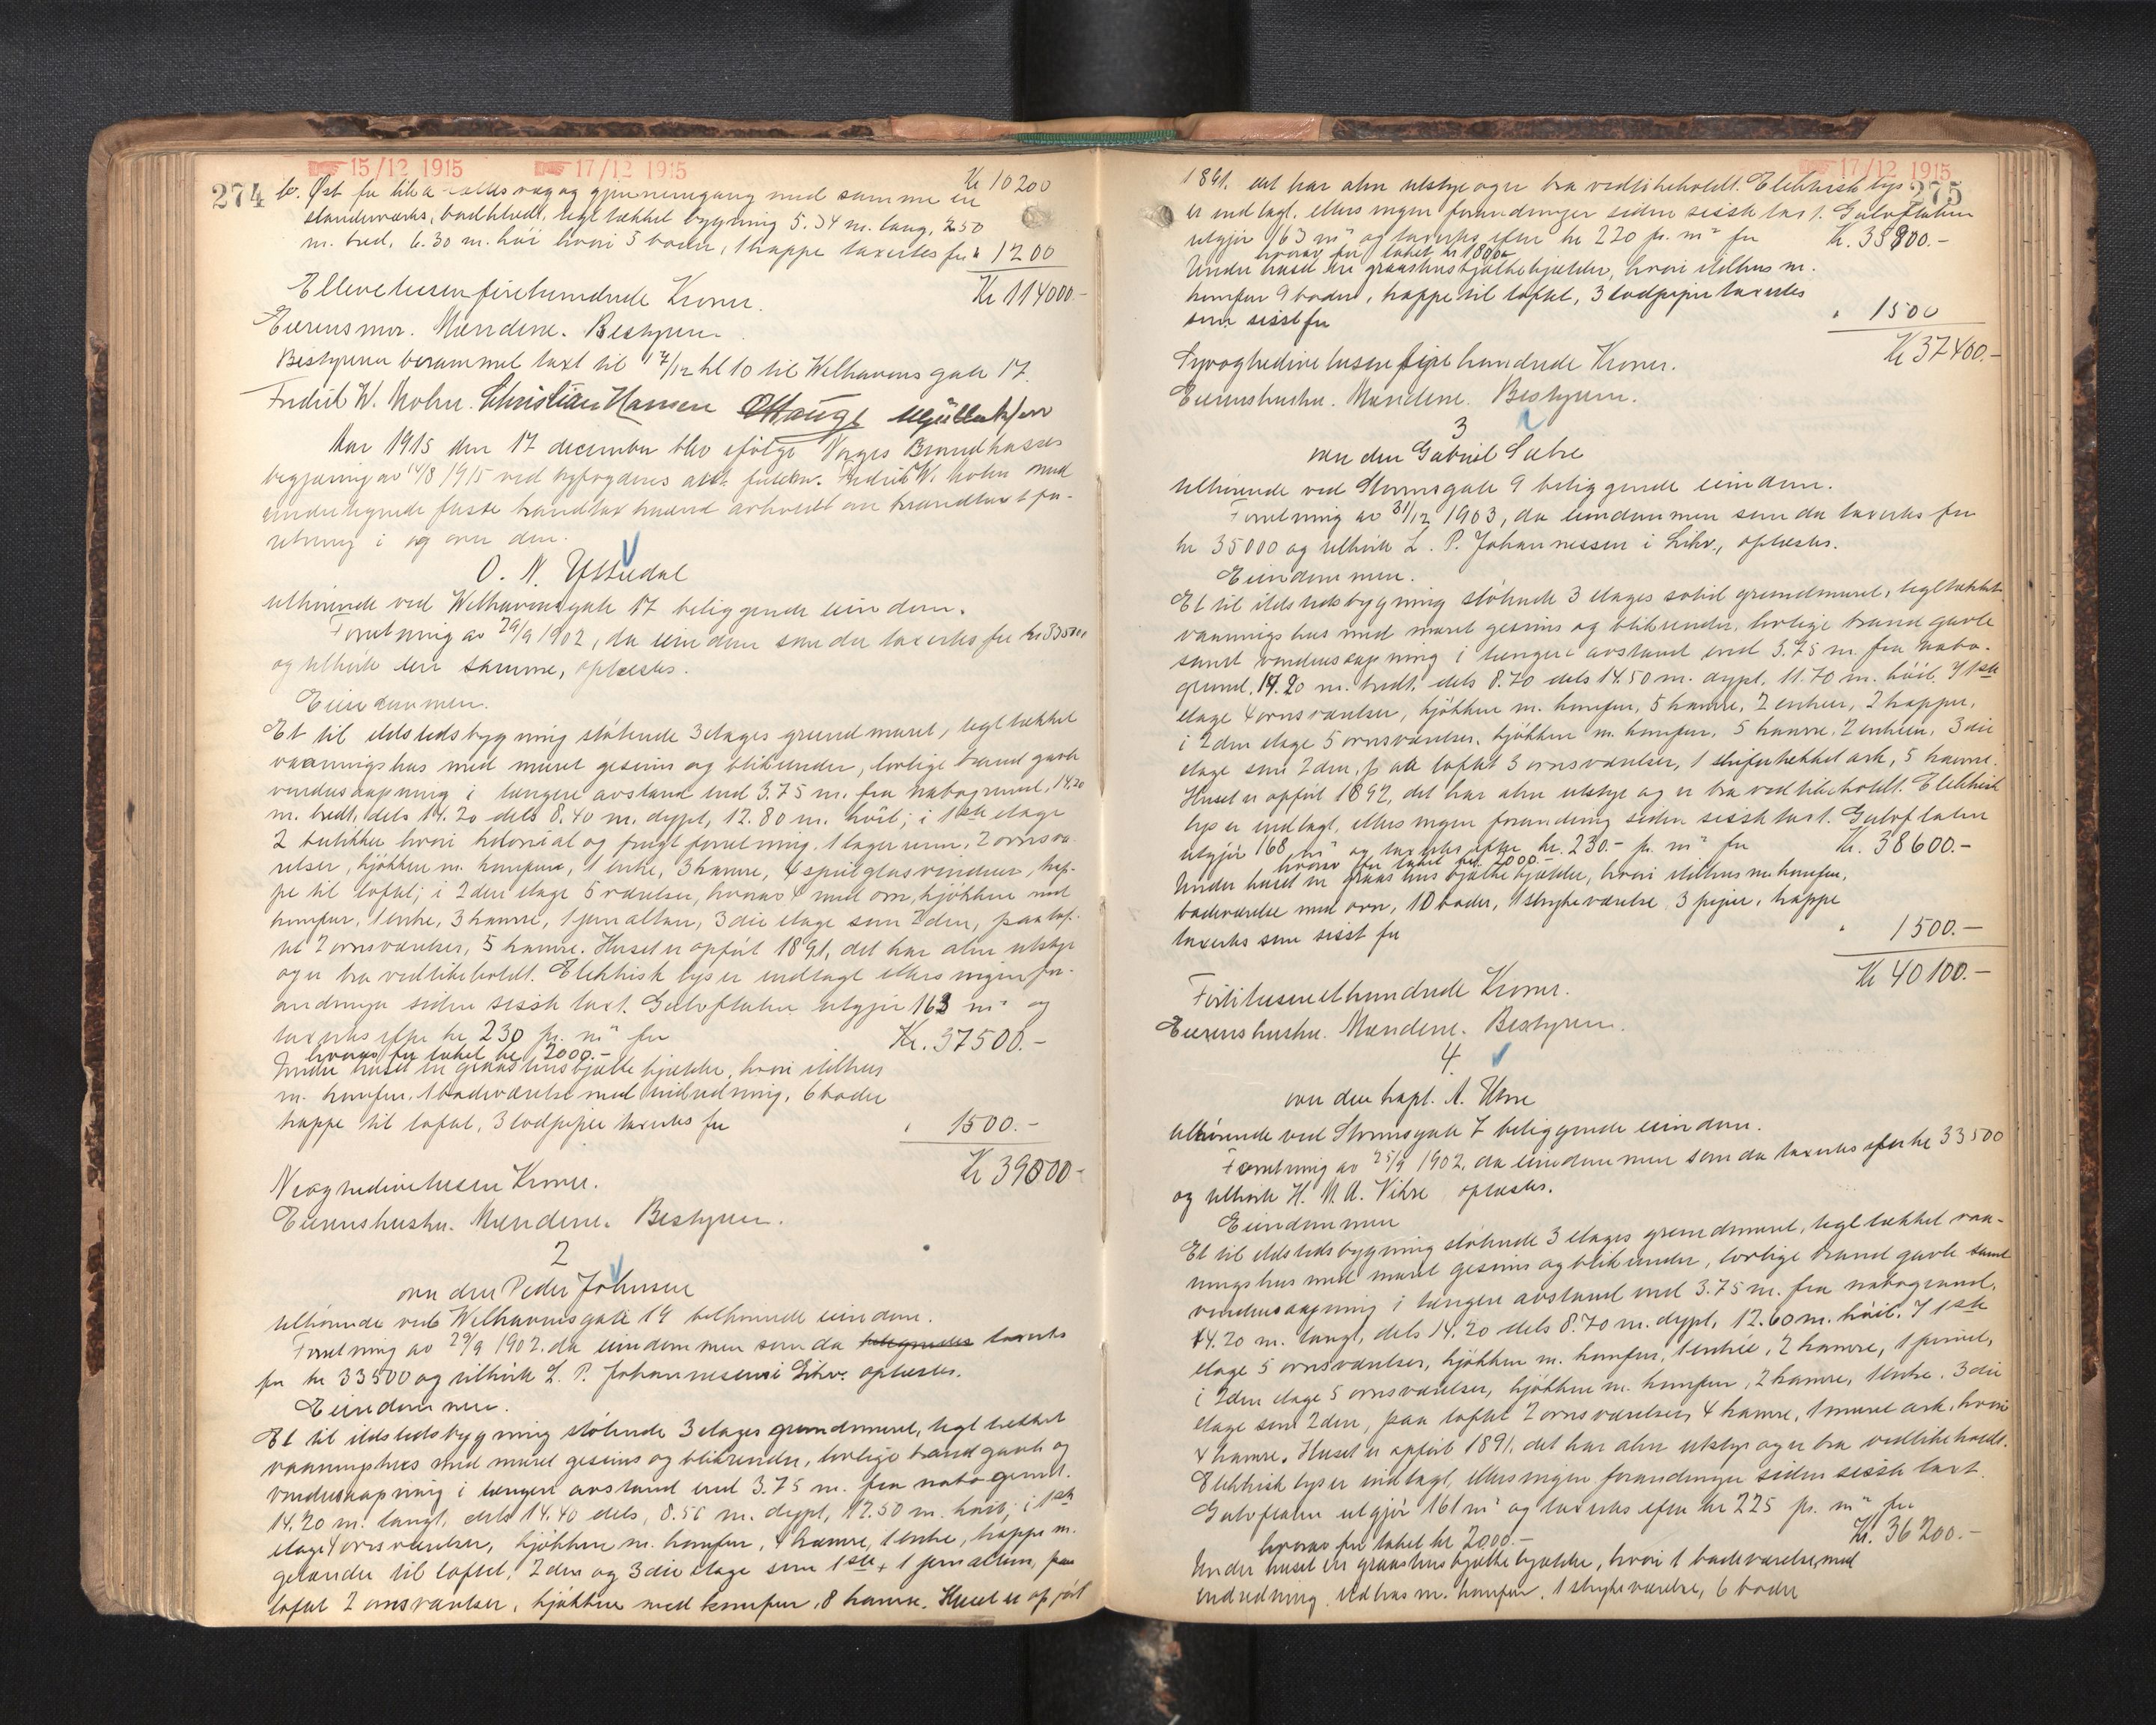 15/12 1915 17/12 1915
274
Kr 10200
b. Øst for litra a fællesvæg og gjennemgang med samme en
standerværks, bordklædt, tegltækket bygning 5.34 m. lang, 2.50
m. bred, 6.30 m. høi hvori 5 boder, 1 trappe taxertes for " 1200
Kr 11400.-
Ellevetusenfirehundrede Kroner.
Eierens mor. Mændene. Bestyren.
Bestyreren berammet taxt til 17/12 kl 10 til Welhavens gate 17.
Fredrik W. Mohn. Christian Hansen O Hauge
Aar 1915 den 17 december blev ifølge Norges Brandkasses
begjæring av 14/8 1915 ved byfogdens autt. fuldm. Fredrik W. Mohn med
undertegnede faste brandtaxtmænd avholdt en brandtaxtfor-
retning i og over den.
O. N. Yttredal
tilhørende ved Welhavensgate 17 beliggende eiendom.
Forretning av 29/9 1902, da eiendommen som da taxertes for kr. 33500
og tilhørte den samme, oplæstes.
Eiendommen.
Et til ildstedsbygning støtende 3 etages grundmuret, tegltækket
vaaningshus med muret gesims og blikrender, lovlige brandgavle
vindusaapning i længere avstand end 3.75 m. fra nabogrund, 14,20
m. bredt, dels 14.20 dels 8.40 m. dypt, 12.80 m. høit; i 1ste etage
2 butikker hvori kolonial og frugt forretning. 1 lagerrum, 2 ovnsvæ-
relser, kjøkken m. komfur, 1 entre, 3 kamre, 4 speilglasvinduer, trap-
pe til loftet; i 2den etage 5 værelser, hvorav 4 med ovn, kjøkken med
komfur, 1 entre, 3 kamre, 1 jernaltan, 3die etage som 2den, paa lof-
tet 2 ovnsværelser, 5 kamre. Huset er opført 1891, det har alm utstyr
og er bra vedlikeholdt. Elektrisk lys er indlagt ellers ingen for-
andringer siden sisste taxt. Gulvflaten utgjør 163 m² og
taxertes efter kr 230 pr. m² for Kr. 37500.-
hvorav for taket kr 2000.-
Under huset er graastens hjælte kjælder, hvori ildhus
m. komfur, 1 badeværelse med indredning, 6 boder
trappe til loftet, 3 lodpiper taxertes for " 1500.-
Kr 39000.-
Niogtredivetusen Kroner.
Eierens hustru. Mændene. Bestyren.
2
over den Peder Johnsen
tilhørende ved Welhavensgate 19 beliggende eiendom.
Forretning av 29/9 1902. da eiendommen som da taxertes
for kr 33500 og tilhørte L. P. Johannesen i Likv. oplæstes.
Eiendommen.
Et til ildstedsbygning støtende 3 etages grundmuret, tegltækket
vaaningshus med muret gesims og blikrender, lovlige brandgavle og
vindusaapning i længere avstand end 3.75 m. fra nabogrund.
14.20 m. langt, dels 14.40 dels, 8.56 m. dypt, 12.50 m. høit; i 1ste
etage 4 ovnsværelser, kjøkken m. komfur, 4 kamre, 1 entre, trappe m.
gelænder til loftet, 2den og 3die etage som 1ste + 1 jernaltan, paa
loftet 2 ovnsværelser, kjøkken med komfur, 8 kamre. Huset er opført
17/12 1915
275
1891. det har alm utstyr og er bra vedlikeholdt. Elektrisk lys
er indlagt. ellers ingen forandringer siden sisste taxt. Gulvflaten
utgjør 163 m² og taxertes efter kr 220 pr. m² for Kr. 35900.-
hvorav for taket kr 1800
Under huset er graastens hjælte kjælder, hvori ildhus m.
komfur 9 boder, trappe til loftet, 3 lodpiper taxertes
som sisst for " 1500
Kr 37400.-
Syvogtredivetusenfirehundrede Kroner.
Eierens hustru. Mændene. Bestyren.
3
over den Gabriel Sætre
tilhørende ved Stormsgate 9 beliggende eiendom.
Forretning av 31/12 1903, da eiendommen som da taxertes for
kr 35000 og tilhørte L. P. Johannessen i Likv., oplæstes.
Eiendommen.
Et til ildstedsbygning støtende 3 etages solid grundmuret, tegltækket
vaaningshus med muret gesims og blikrender, lovlige brandgavle
samt vindusaapning i længere avstand end 3.75 m. fra nabo-
grund, 14.20 m. bredt. dels 8.70 dels 14.50 m. dypt, 11.70 m. høit. I 1ste
etage 4 ovnsværelser, kjøkken m. komfur, 5 kamre, 2 entreer, 2 trapper,
i 2den etage 5 ovnsværelser, kjøkken m. komfur, 5 kamre, 2 entreer, 3die
etage som 2den, paa loftet 3 ovnsværelser, 1 skifertækket ark, 5 kamre.
Huset er opført 1892, det har alm utstyr og er bra vedlikeholdt. Elektrisk
lys er indlagt, ellers ingen forandring siden sisste taxt. Gulvflaten
utgjør 168 m² og taxertes efter kr. 230.- pr. m² for Kr. 38600.-
hvorav for taket kr. 2000.-
Under huset er graastens hjælte kjælder, hvori ildhus m. komfur,
badeværelse med ovn, 10 boder, 1 strykeværelse 3 piper, trappe
taxertes som sisst for " 1500.-
Kr 40100.-
Førtitusenethundrede Kroner.
Eierens hustru. Mændene. Bestyren.
4.
over den kapt. A. Utne
tilhørende ved Stormsgate 7 beliggende eiendom.
Forretning av 25/9 1902. da eiendommen som da taxertes for kr 33500
og tilhørte H. M. A. Vikse oplæstes.
Eiendommen
Et til ildstedsbygning støtende 3 etages grundmuret, tegltækket vaa-
ningshus med muret gesims og blikrender, lovlige brandgavle samt
vindusaapning i længere avstand end 3.75 m. fra nabogrund.
14.20 m. langt, dels 14.20 dels 8.70 m. dypt, 12.60 m. høit. I 1ste
etage 5 ovnsværelser, kjøkken m. komfur, 1 entrée, 2 kamre,
i 2den etage 5 ovnsværelser, kjøkken m. komfur, 2 kamre, 1 entre. 3die
etage som 2den, paa loftet 2 ovnsværelser, 4 kamre, 1 muret ark, hvori
4 kamre. Huset er opført 1891, det har alm utstyr og er bra vedlikeholdt.
Elektrisk lys er indlagt, ellers ingen forandringer siden sisste taxt.
Gulvflaten utgjør 161 m² og taxertes efter kr 225 pr. m² for
hvorav for taket kr 2000.- Kr. 36200.-
Under huset er graastens hjælte kjælder, hvori 1 badeværelse, med
indredning, ildhus m. komfur, 1 strykeværelse, 6 boder